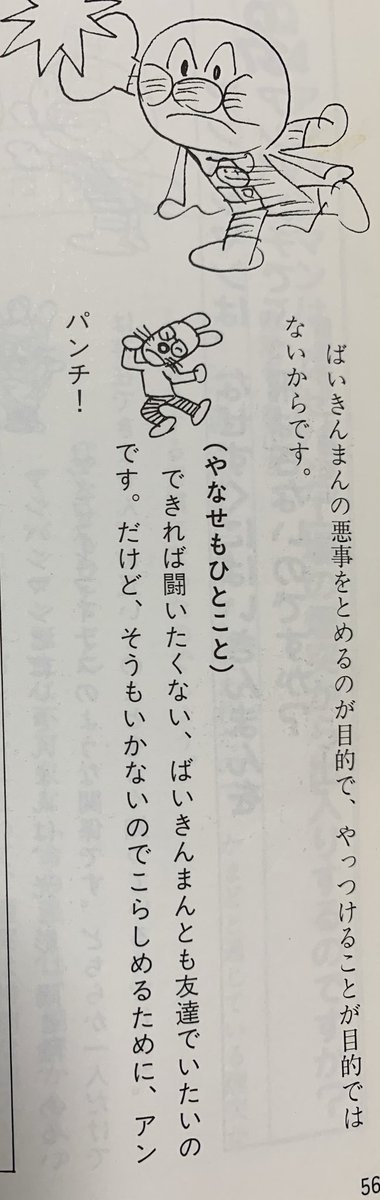 ばいきんまんの悪事をとめるのが目的で、やっつけることが目的では
ないからです。
(やなせもひとこと)
できれば闘いたくない、ばいきんまんとも友達でいたいの
です。だけど、そうもいかないのでこらしめるために、アン
パンチ！
56